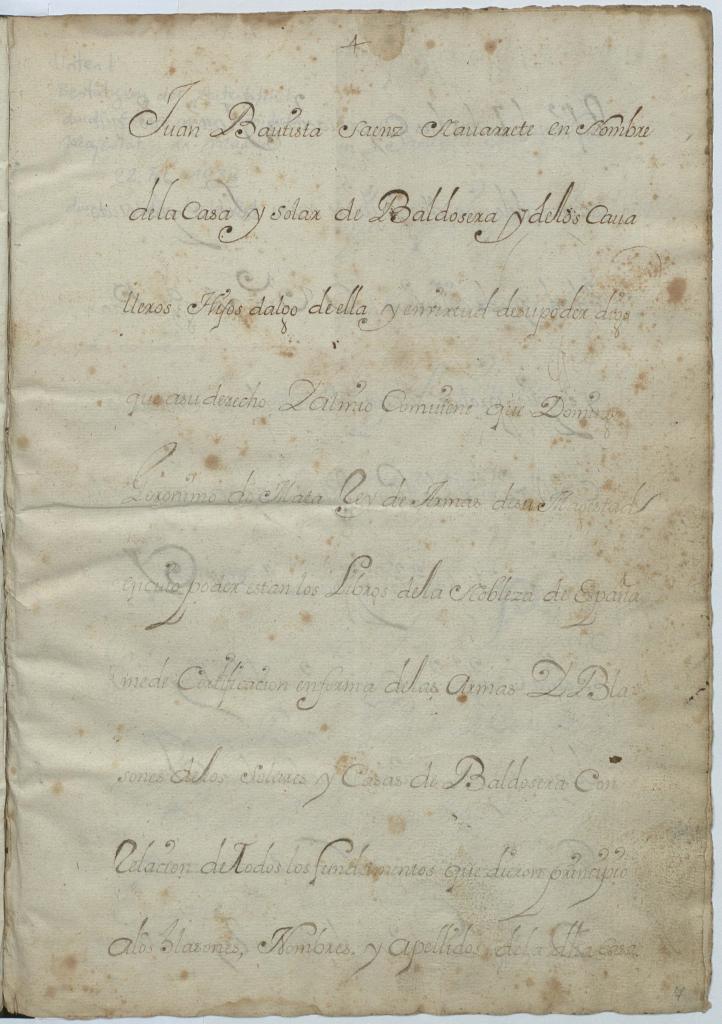 4
Juan Bautista Saenz Nauarrete en Nombre
dela Casa y solar de Baldosera y delos Caua
lleros Hijos dalgo de ella y en virtud de su poder digo
que asu derecho Y almio Comuiene que Domingo
Geronimo de Mata Rey de Armas desu Magestad
en cuio poder estan los Libros dela Nobleza de España
mede Certificacion enforma delas armas Y Bla
sones delos Solares y Casas de Baldosera Con
Relacion de todos los fundamentos que dieron principio
alos Blasones, Nombres, y apellidos dela dha casa